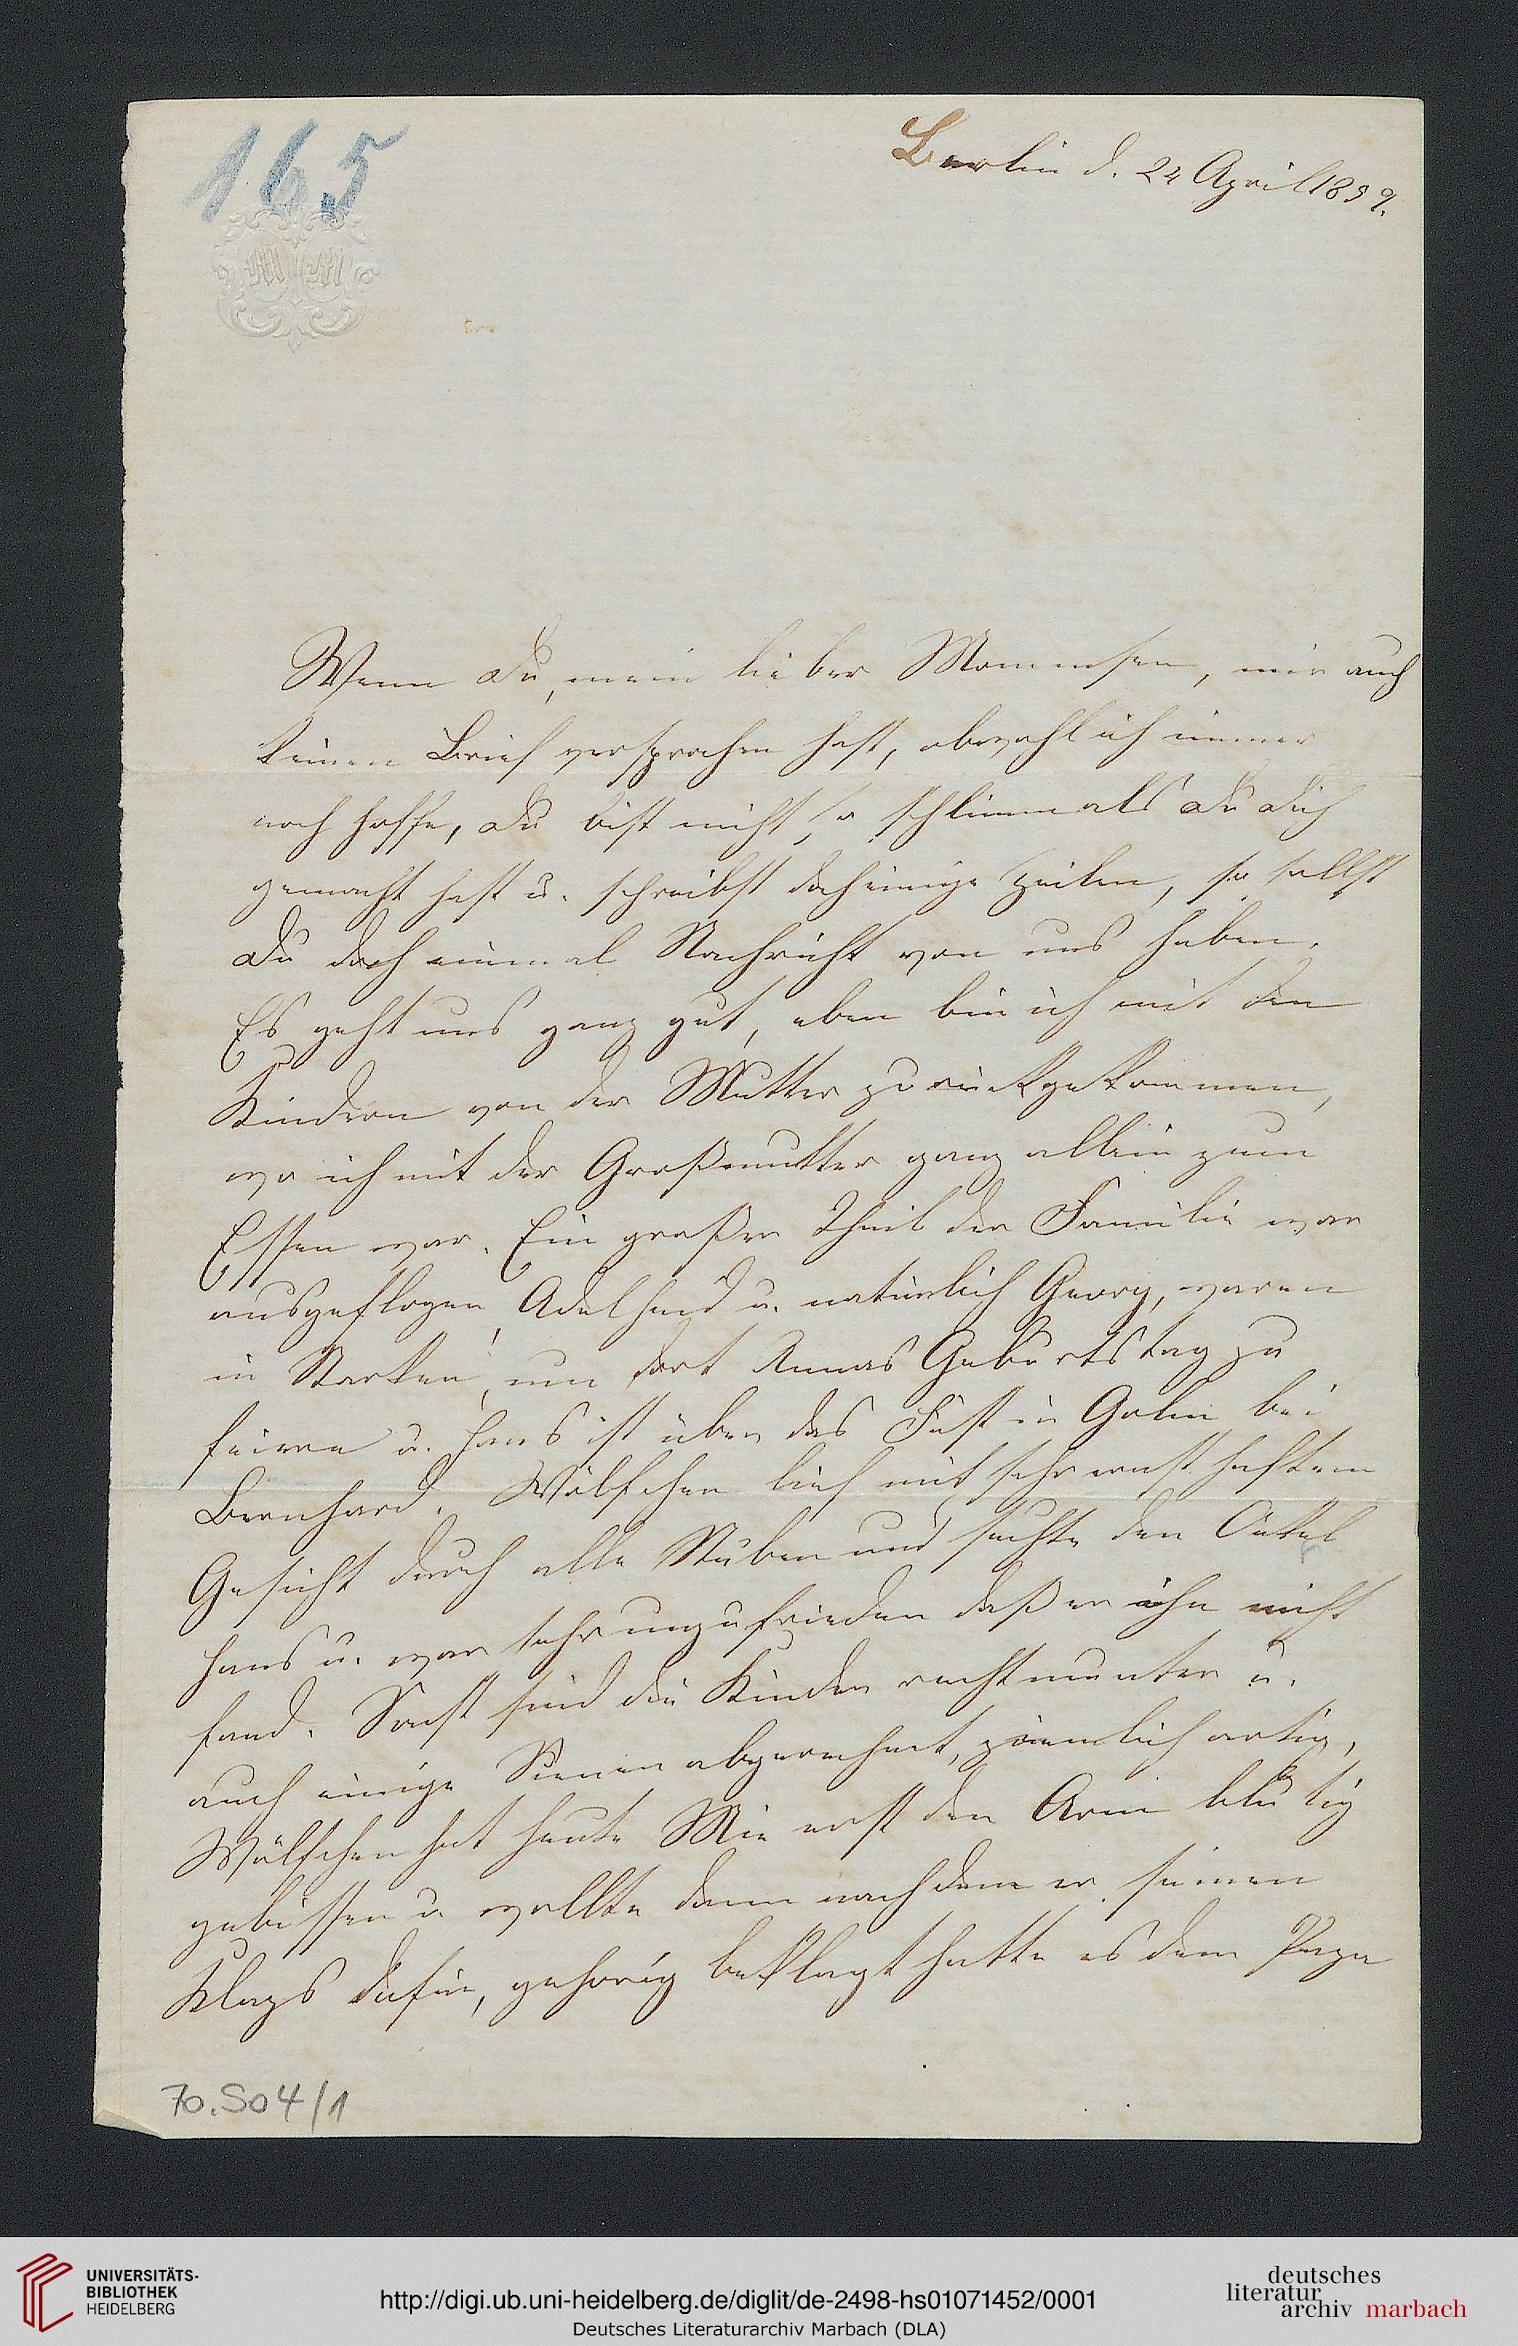 165
Berlin d. 24 April 1859.
Wenn Du, mein lieber Mommsen, mir auch
keinen Brief versprochen hast, obwohl ich immer
noch hoffe, Du bist nicht so schlimm als Du Dich
gemacht hast u. schreibst doch einige Zeilen, so sollst
Du doch einmal Nachricht von uns haben.
Es geht uns ganz gut, eben bin ich mit den
Kindern von der Mutter zurückgekommen,
wo ich mit der Großmutter ganz allein zum
Essen war. Ein großer Theil der Familie war
ausgeflogen, Adelheid u. natürlich Georg, waren
in Staaken, um dort Annas Geburtstag zu
feiern u. Hans ist über das Fest in Golm bei
Bernhard. Wölfchen lief mit sehr ernsthaftem
Gesicht durch alle Stuben und suchte den Onkel
Hans u. war sehr unzufrieden daß er ihn nicht
fand. Sonst sind die Kinder recht munter u.
auch einige Scenen abgerechnet, ziemlich artig,
Wölfchen hat heute Mie erst den Arm blutig
gebissen u. wollte dann nachdem er seinen
Klaps dafür, gehörig beklagt hatte es dem Papa
70.504/1
UNIVERSITÄTS-
BIBLIOTHEK
HEIDELBERG
http://digi.ub.uni-heidelberg.de/diglit/de-2498-hs01071452/0001
Deutsches Literaturarchiv Marbach (DLA)
deutsches
literatur
archiv marbach